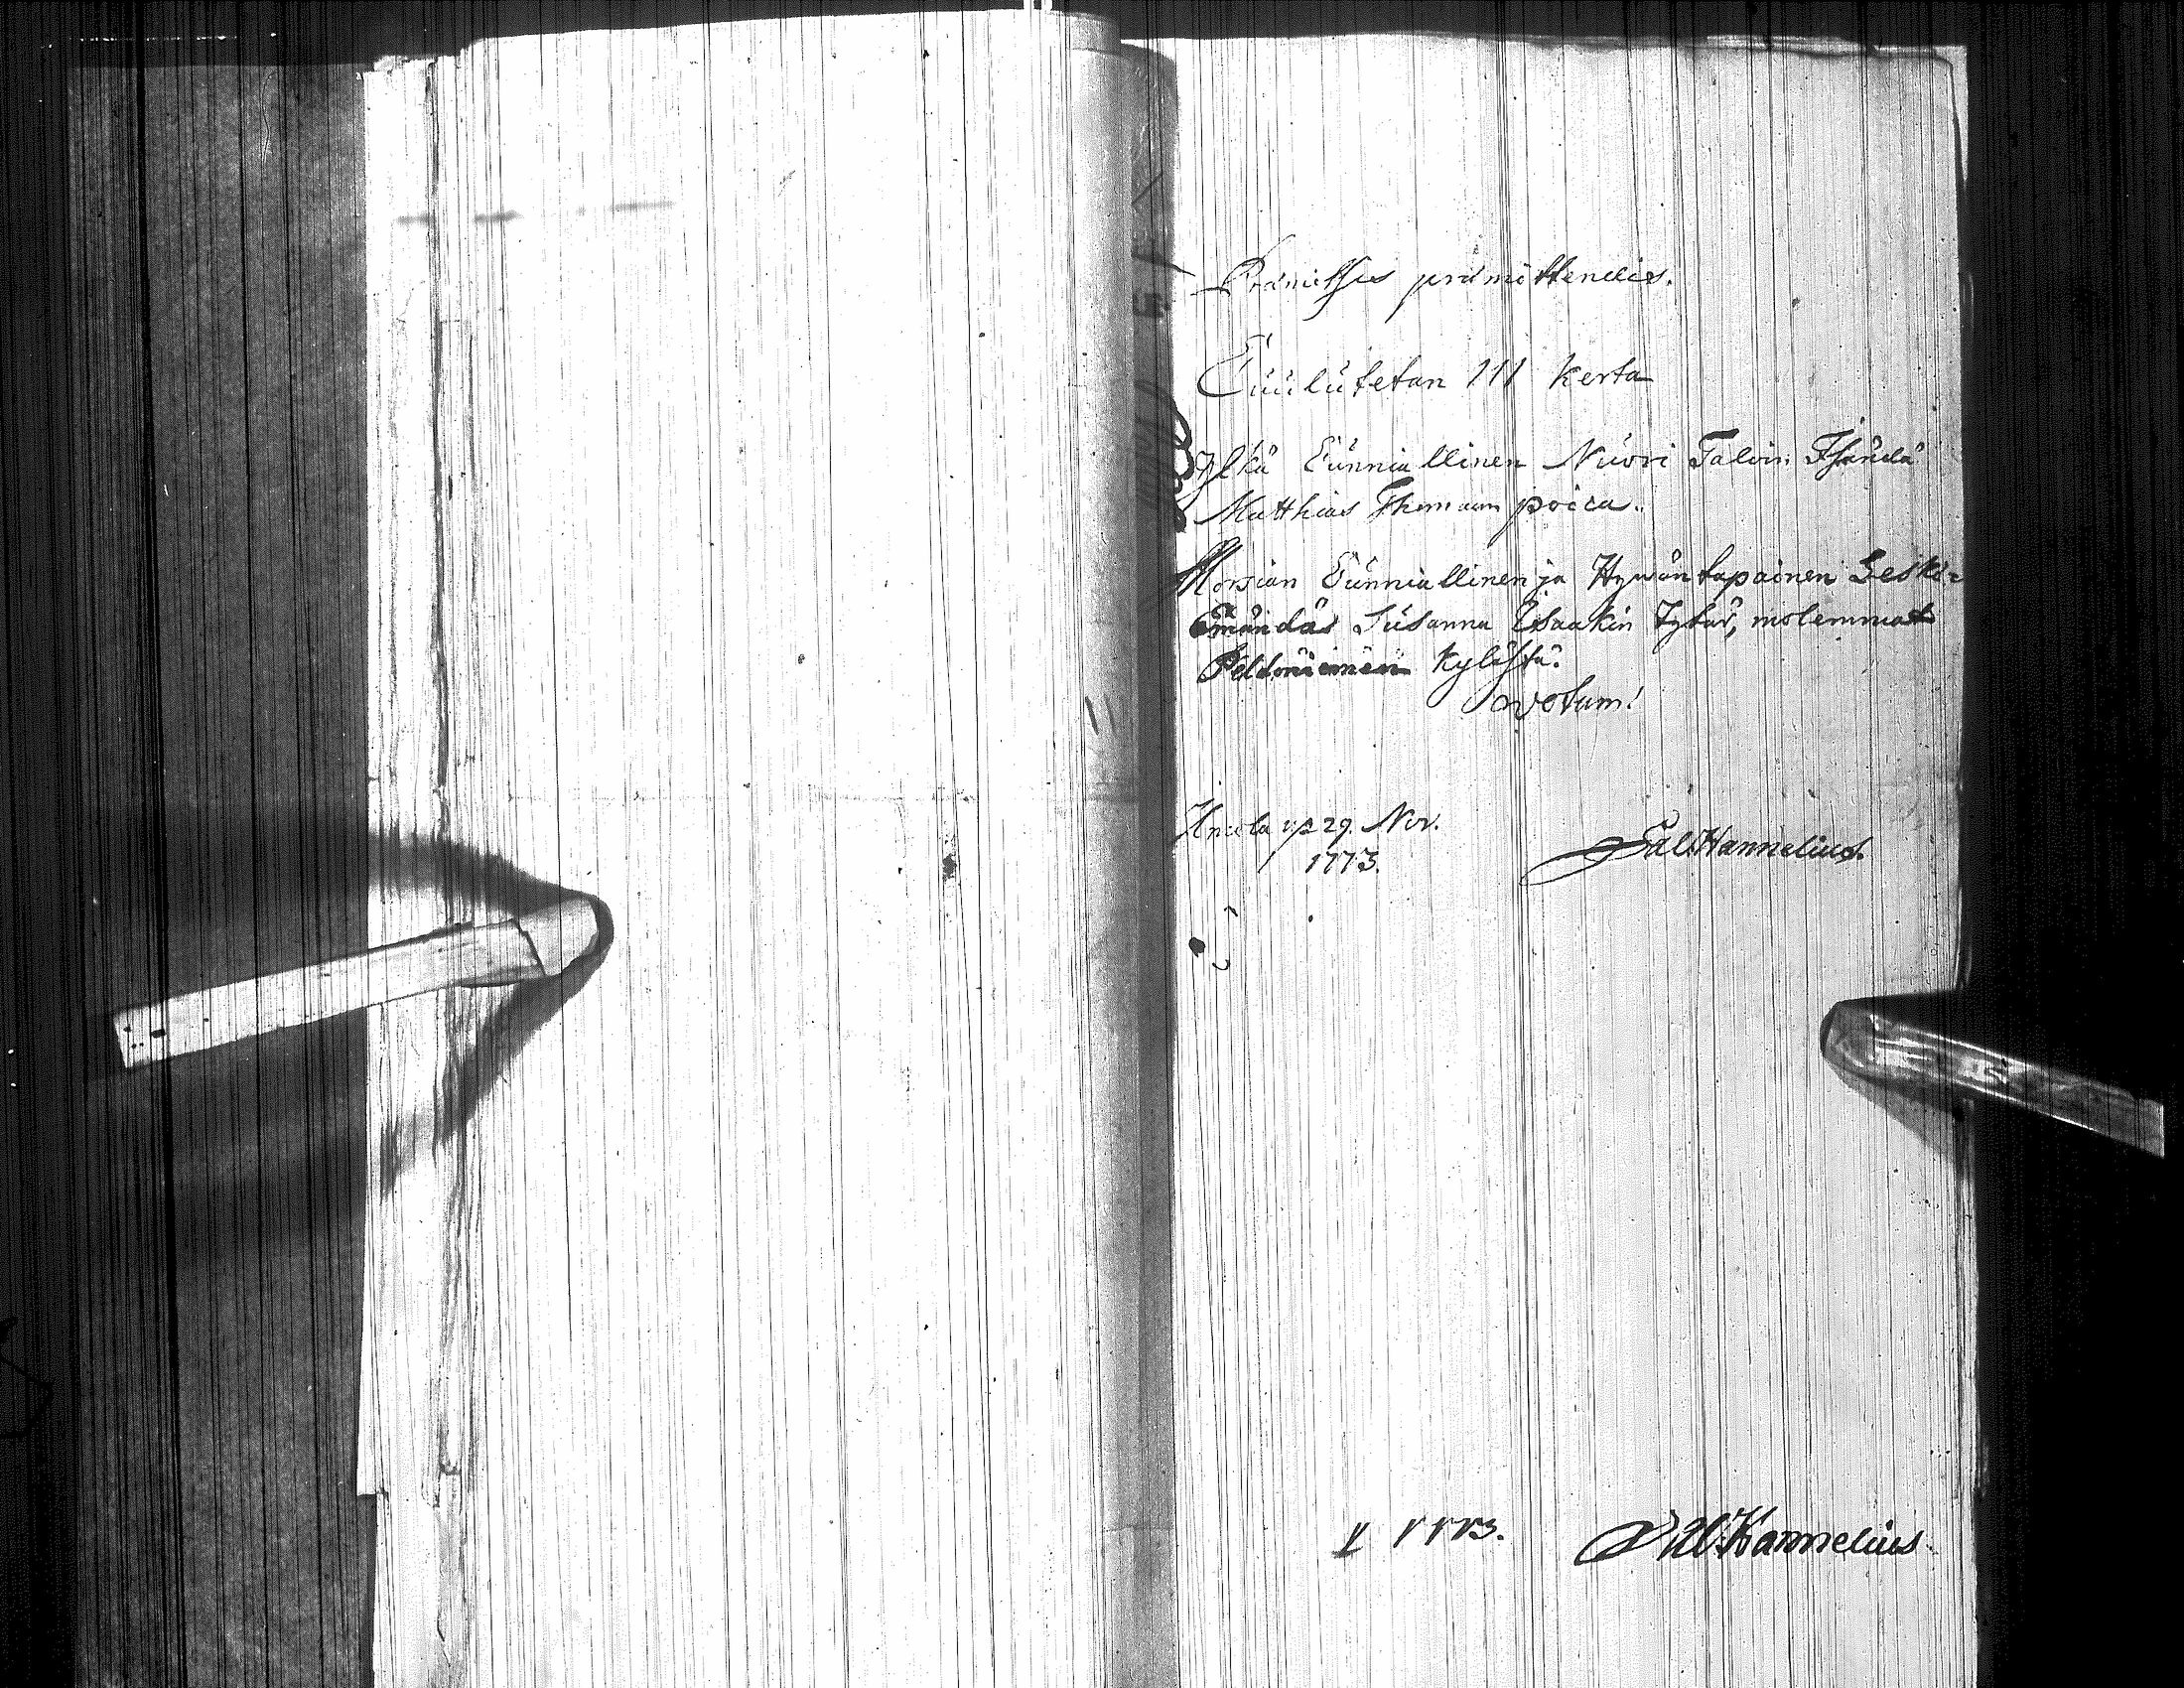 Præmissis præmittendis.
Cuulutetan III Kerta
Ylkä Cunniallinen Nuori Talon Isändä
Matthias Thomaan poica.
Morsian Cunniallinen ja Hywäntapainen Leski-
Emändä Susanna Esaakin Tytär, molemmat
Peldoniemen Kylästä.
votum!
29. Nov.
1773.
Sal. Hannelius.
V 1773.
Sal. Hannelius